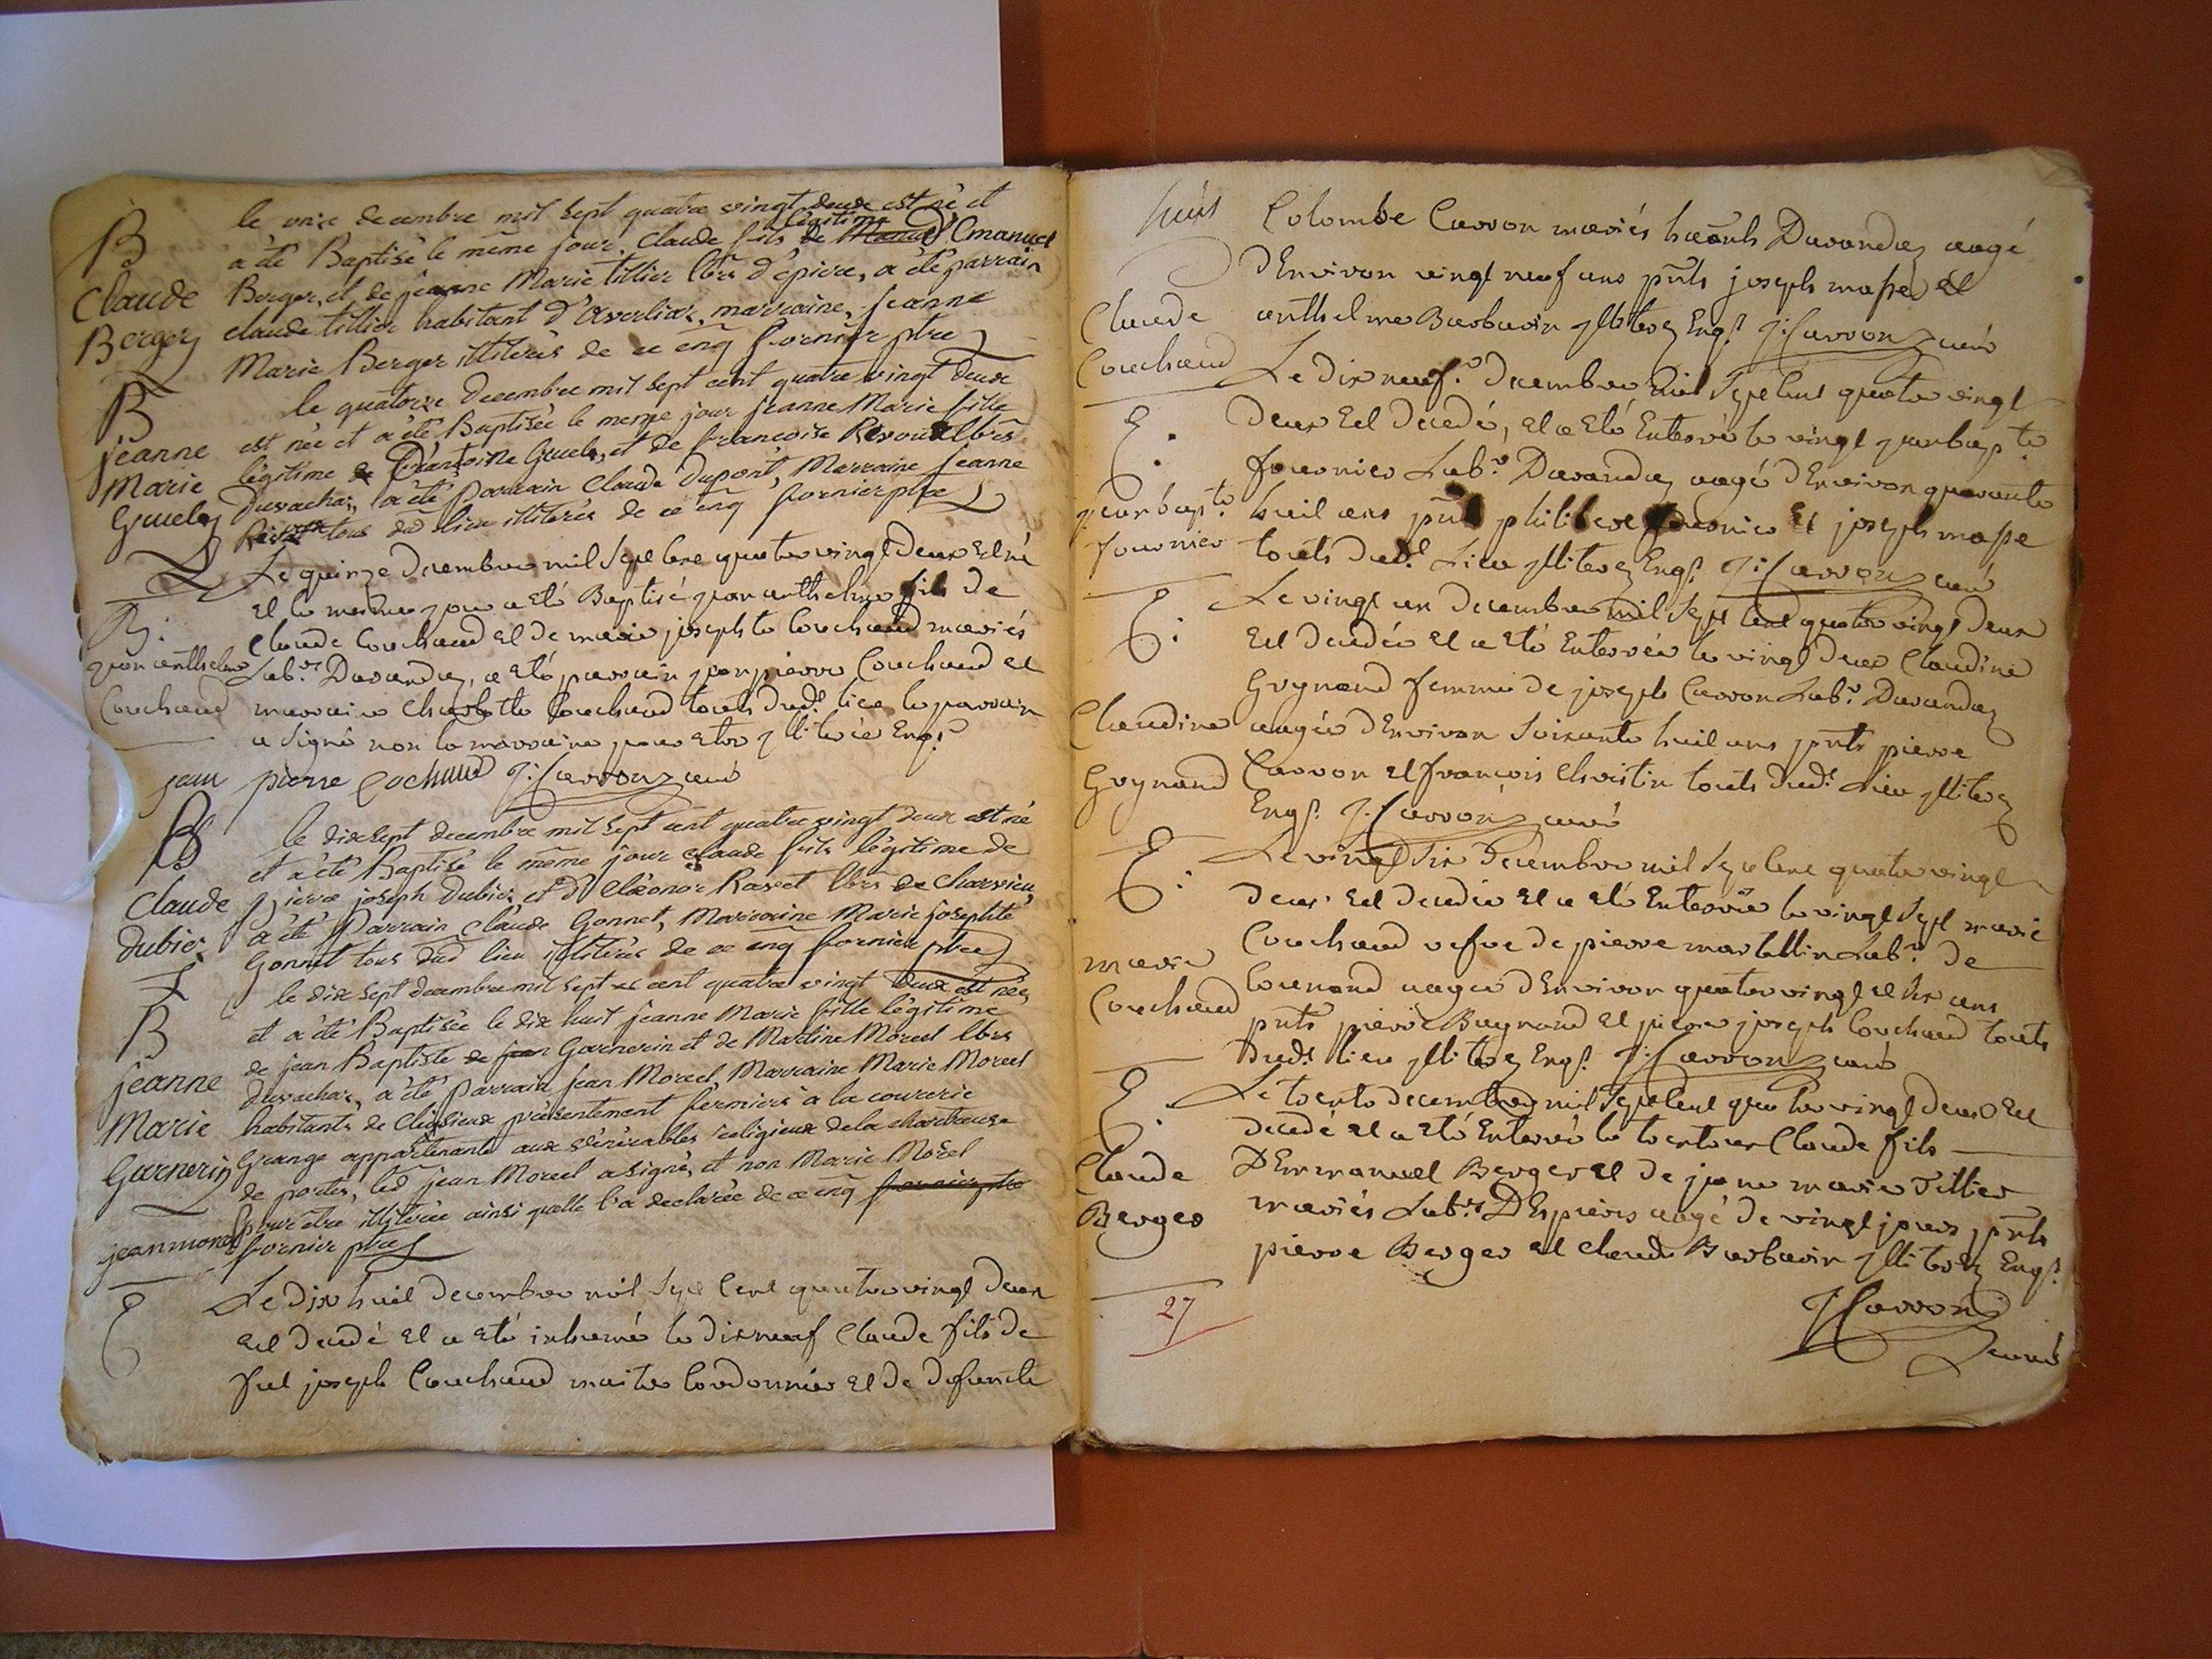 B
le onze decembre mil sept quatre vingt deux est né et
a été Baptisé le même jour claude fils légitime de Manuel D'Emanuel
Claude Berger, et de jeanne Marie tillier lbrs d'épire, a été parrain
Berger claude tillier habitant d' marraine, jeanne
Marie Berger illitérés de ce enq fornier ptre
B
le quatorze decembre mil sept cent quatre vingt deux
jeanne est née et a été Baptisée le meme jour jeanne Marie fille
Marie légitime de et de francoise lbrs
Duvachat, a été Parrain Claude Dupont, Marraine jeanne
tous dud lieu illitérés de ce enq fornier ptre
B. Le quinze decembre mil sept cent quatre vingt deux est né
et le mesme jour a eté Baptisé jean anthelme fils de
Claude Couchaud et de marie josephte Couchaud mariés
jean anthelme Labrs Davanday, a eté parrain jean pierre Couchaud et
Couchaud marraine Charlotte Couchaud touts dudt lieu le parrain
a signé non la marraine pour etre illiterée Engt
jean pierre cochaud J: Carron curé
B
le dix sept decembre mil sept cent quatre vingt deux est né
et a été Baptisé le même jour claude fils légitime de
Claude pierre joseph Dubiez et d'Eléonor Ravet lbrs de Charvieu
Dubiez a été Parrain Claude Gonnet, Marraine Marie josephte
Gonnet tous dud lieu illitérés de ce enq fornier ptre
B
le dix sept decembre mil sept cent quatre vingt deux est née
et a été Baptisée le dix huit jeanne Marie fille légitime
de jean Baptiste de jean Garnerin et de Martine Morel lbrs
jeanne Duvachat, a été Parrain jean Morel, Marraine Marie Morel
Marie habitants de présentement fermiers à la courerie
Garnerin Grange appartenante aux vénérables religieux de la chartreuse
de portes, led jean Morel a signé, et non Marie Morel
pour etre illitérée ainsi quelle l'a declarée de ce enq fornier ptre
jean morel fornier ptre
E
Le dix huit decembre mil sept cent quatre vingt deux
est decedé et a eté inhumé le dix neuf Claude fils de
fut joseph Couchaud maitre Cordonnier et de defuncte
Colombe Carron mariés Davanday aagé
D'Environ vingt neuf ans pnts joseph masse et
Claude anthelme Barbarin illiterez Engt J: Carron curé
Couchaud
E. Le dix neuf decembre mil sept cent quatre vingt
deux Est decedé, et a eté Enterré le vingt jean bapte
fournier Labr Davanday aagé D'Environ quarante
jean bapte huit ans pnts philibert fournier Et joseph masse
fournier touts dudt Lieu illiterez Engt J: Carron curé
E: Le vingt un decembre mil sept cent quatre vingt deux
Est decedée et a eté Enterrée le vingt deux Claudine
Goynand femme de joseph Carron Labr Davanday
Claudine aagée D'Environ soixante huit ans pnts pierre
Goynand Carron et françois Christin touts dudt Lieu illiterez
Engt J: Carron curé
E: Le vingt six decembre mil sept cent quatre vingt
deux Est decedée et a eté Enterrée le vingt sept marie
Couchaud vefve de pierre martellin Labr de
marie aagée D'Environ quatre vingt et six ans
Couchaud pnts pierre Buynand et pierre joseph Couchaud touts
dudt lieu illiterez Engt J: Carron curé
E. Le trente decembre mil sept cent quatre vingt deux Est
decedé et a eté Enterré le trente un Claude fils
Claude D'Emmanuel Berger et de jeanne marie Tillier
Berger mariés Labrs D'Espierre aagé de vingt jours pnts
pierre Berger et Claude Barbarin illiterez Engt
J Carron
curé
27